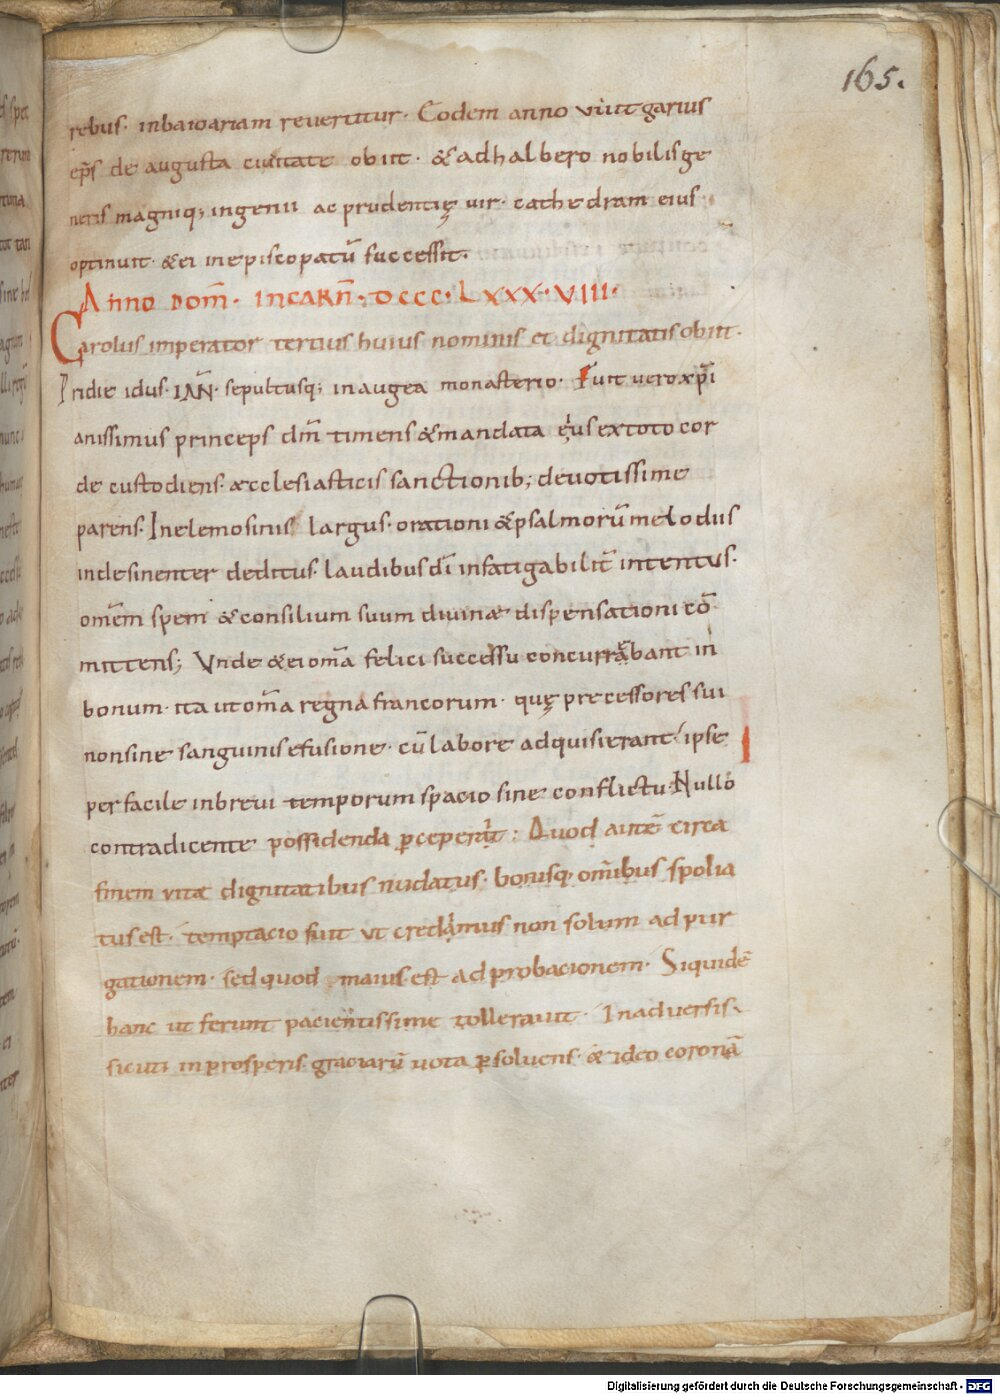 165.
rebus· inbaioariam revertitur· Eodem anno vvitgarius
ep̅s de augusta civitate obiit· &adhalbero nobilis ge
neris magniq; ingenii ac prudentię vir· cathedram eius
optinuit· &ei inepiscopatū successit·
Anno Dom̅· Incarn̅· DCCC·LXXX·VIII·
Carolus imperator tertius huius nominis et dignitatis obiit·
Pridie idus· IAN̅· sepultusq; in augea monasterio· Fuit vero xp̅i
anissimus princeps dm̅ timens &mandata eius extoto cor
de custodiens· æcclesiasticis sanctionib; devotissime
parens· Inelemosinis largus· orationi &psalmorū melodiis
indesinenter deditus· laudibus di̅ infatigabilit̅ intentus·
omēm spem &consilium suum divinae dispensationi cō
mittens; Vnde &ei om̅a felici successu concurrebant in
bonum· ita ut om̅a regna francorum· quę precessores sui
nonsine sanguinis efusione· cū labore adquisierant· ipse
perfacile inbrevi temporum spacio sine conflictu· Nullo
contradicente possidenda p̱ceperit: Quod autē circa
finem vitae dignitatibus nudatus· bonisq; om̅ibus spolia
tus est· temptacio fuit vt credamus non solum ad pur
gationem· sed quod maius est ad probacionem· Siquidē
hanc ut ferunt pacientissime tolleravit· In adversis·
sicuti in prosperis· graciarū vota p̱solvens· & ideo coronā
Digitalisierung gefördert durch die Deutsche Forschungsgemeinschaft - DFG